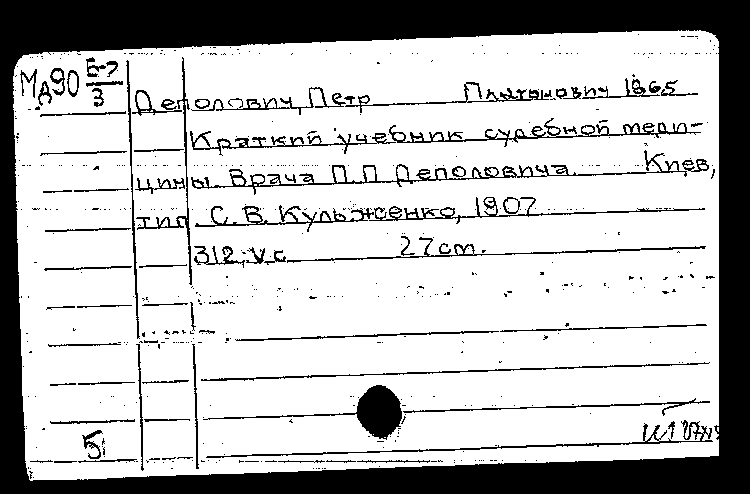 Мд90 Б-7
3
Деполович, Петр Платонович 1865
Краткий учебник судебной меди-
цины. Врача П.П Деполовича. Киев,
тип. С. В. Кульженко, 1907
312, V с. 27 cm.
5